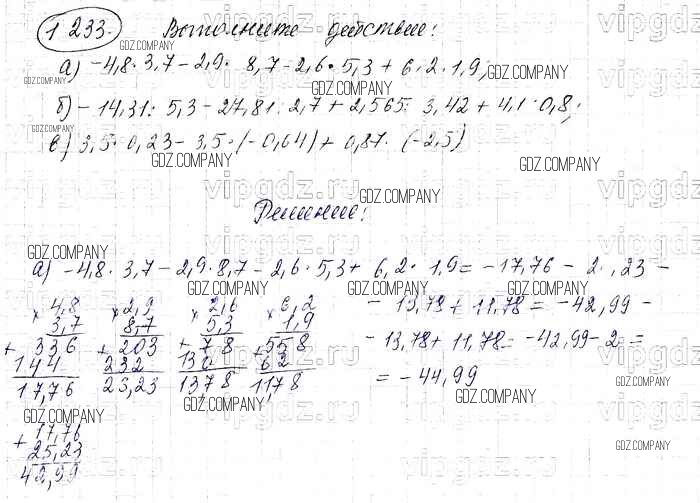 1233. Выполните действие:
GDZ.COMPANY
а) -4,8·3,7-2,9·8,7-2,6·5,3+6·2·1,9;
GDZ.COMPANY
б) -14,31:5,3-27,81:2,7+2,565:3,42+4,1·0,8;
в) 3,5·0,23-3,5·(-0,64)+0,87·(-2,5)
GDZ.COMPANY GDZ.COMPANY
vipgdz.ru vipgdz.ru
GDZ.COMPANY
Решение:
GDZ.COMPANY
а) -4,8·3,7-2,9·8,7-2,6·5,3+6,2·1,9=-17,76-2 ,23-
GDZ.COMPANY GDZ.COMPANY GDZ.COMPANY
× 4,8 × 2,9 × 2,6 × 6,2 - 13,79+11,78=-42,99-
3,7 8,7 5,3 1,9 - 13,78+11,78=-42,99-2=
+ 336 + 203 + 78 + 558 = -44,99
144 232 130 62
17,76 23,23 1378 1178
GDZ.COMPANY GDZ.COMPANY GDZ.COMPANY
+ 17,76
25,23
42,99
GDZ.COMPANY